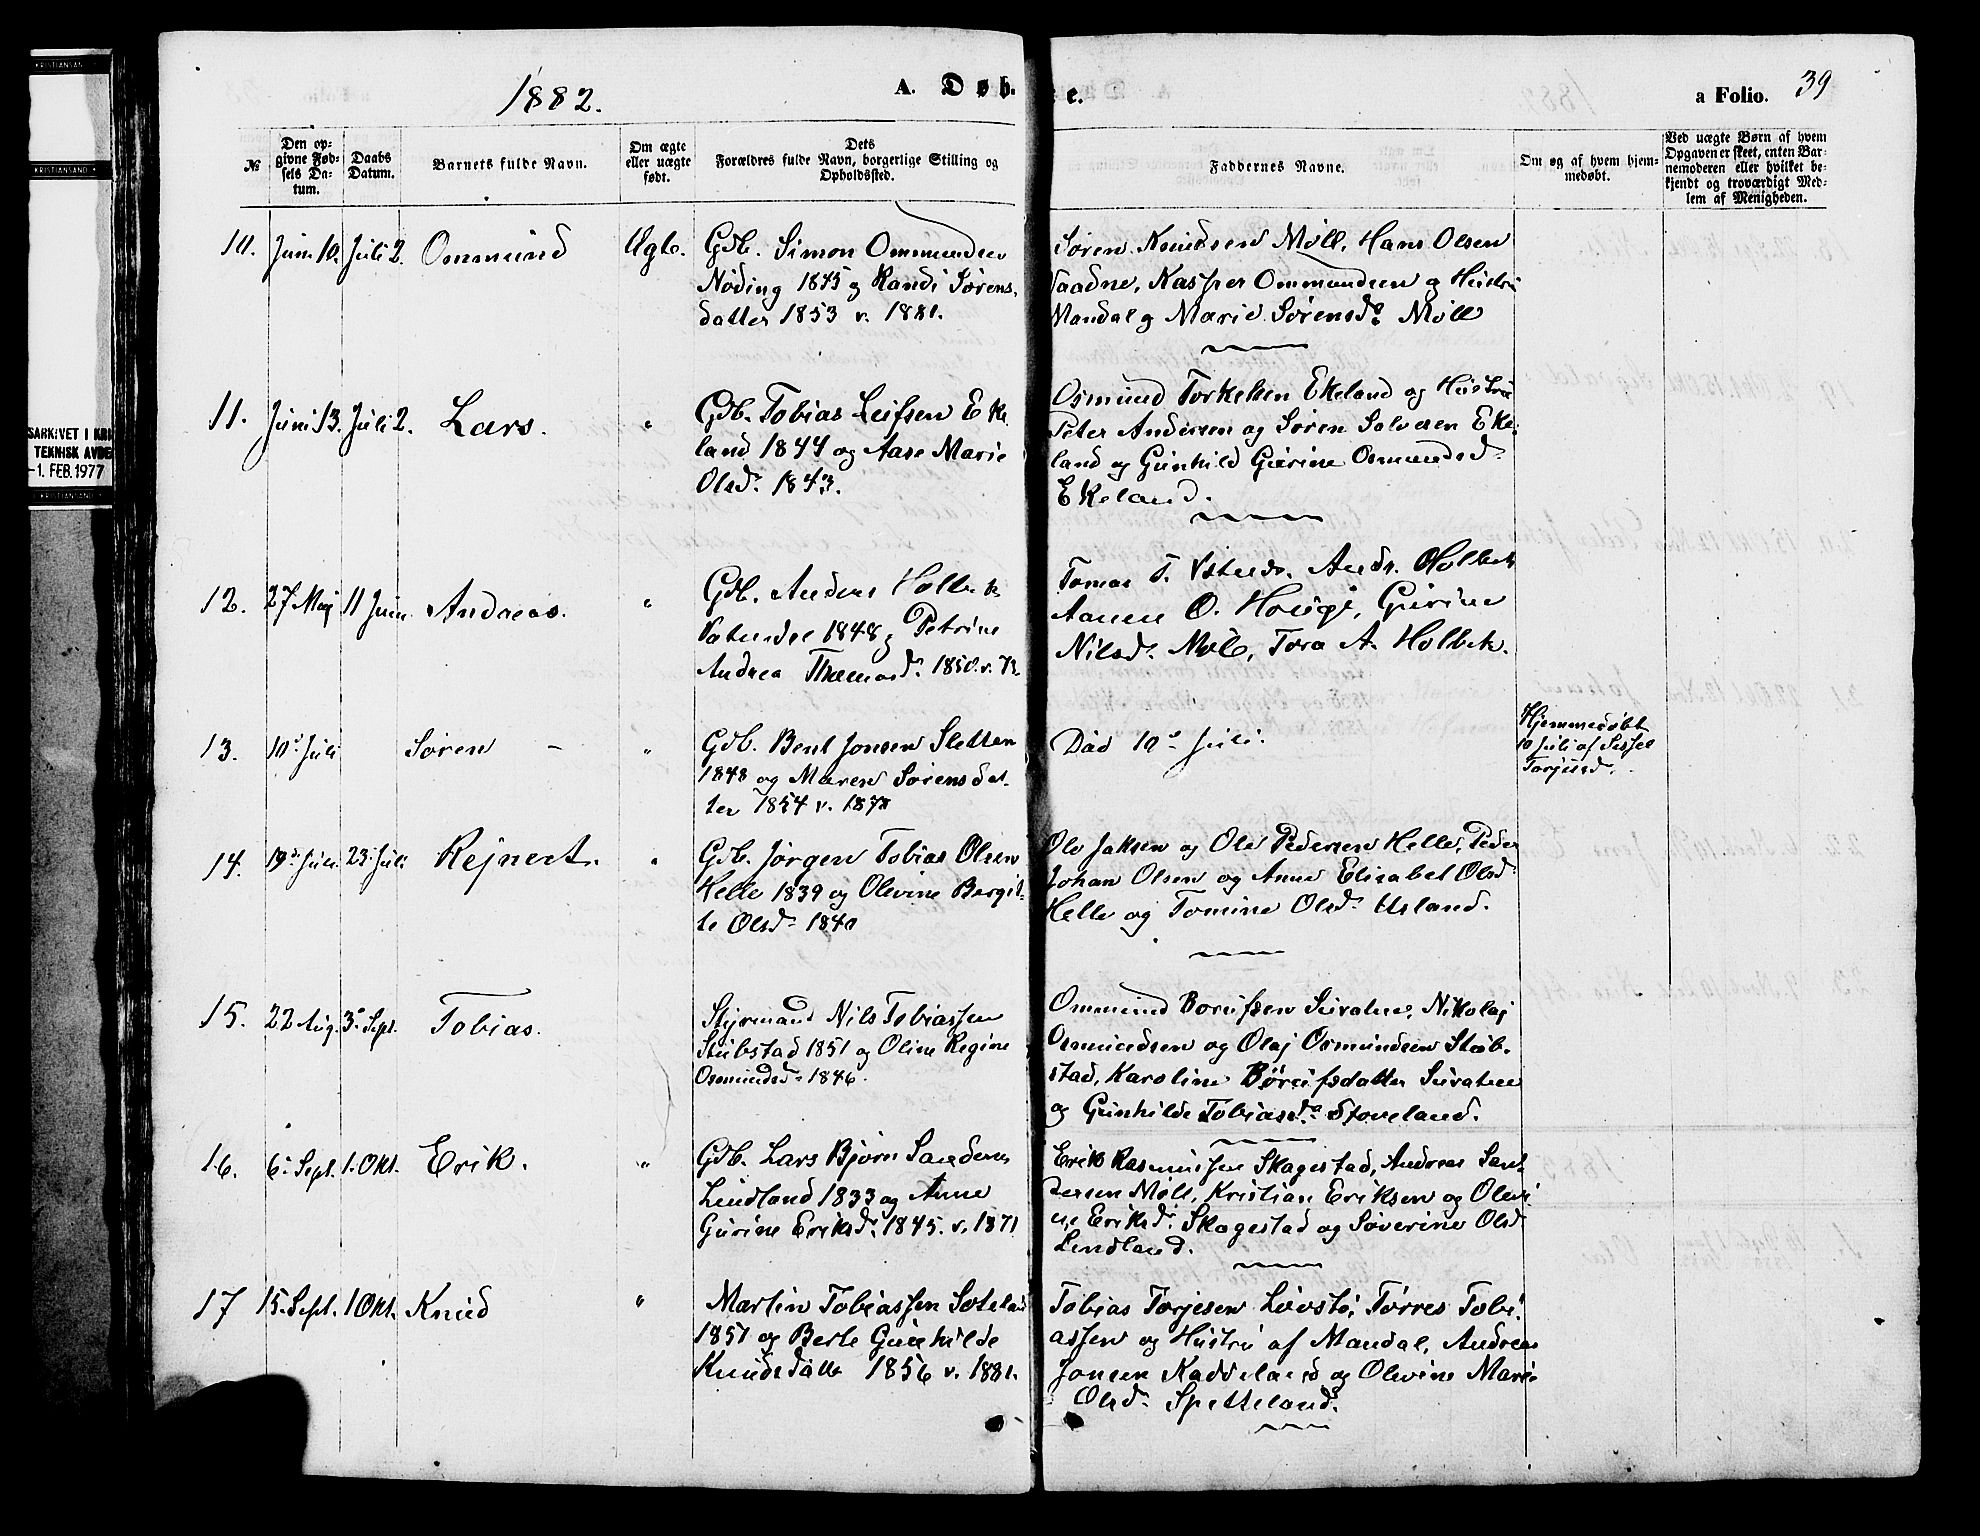 KRISTIANSAND
KRISTIANSAND
SARKIVET I KRI
TEKNISK AVDE
-1. FEB. 1977
KRISTIANSAND
1882.
A. Døb-
e.
a Folio. 39
№
Den op-
givne Fød-
sels Da-
tum.
Daabs
Datum.
Barnets fulde Navn.
Om ægte
eller uægte
født.
Dets
Forældres fulde Navn, borgerlige Stilling og
Opholdssted.
Faddernes Navne.
Om og af hvem hjem-
medøbt.
Ved uægte Børn af hvem
Opgaven er skeet, enten Bar-
nemoderen eller hvilket be-
kjendt og troværdigt Med-
lem af Menigheden.
10. Juni 10. Juli 2. Ommund
Gdb. Simon Ommundsen
Nøding 1845 og Randi Sørens-
datter 1853 v. 1881.
Søren Knudsen Møll, Hans Olsen
Kasper Ommundsen og Hustru
Mandal og Marie Sørensd. Møll
11. Juni 13. Juli 2. Lars. "
Gdb. Tobias Leifsen Eke-
land 1844 og Aase Marie
Olsd. 1843.
Osmund Torkelsen Ekeland og Hustru
Peter Andersen og Søren Salvesen Eke-
land og Gunhild Gurine Osmundsd.
Ekeland.
12. 27 Maj 11 Juni Andreas. "
Gdb. Anders Holbek
1848 og Petrine
Andrea Thomasd. 1850. v.
Tomas T. Andr. Holbek
Aanen O. Houge, Gurine
Nilsd. Møll, Tora A. Holbek.
13. 10d Juli Søren - "
Gdb. Bent Jonsen Sletten
1848 og Maren Sørensdat-
ter 1854 v. 1878
Død 10d Juli.
Hjemmedøbt
10 Juli af Sissel
Torjusd.
14. 19d Juli 23 Juli Rejnert. "
Gdb. Jørgen Tobias Olsen
Helle 1839 og Olevine Bergit-
te Olsd. 1840
Ole Jaksen og Ole Pedersen Helle, Peder
Johan Olsen og Anne Elisabet Olsd.
Helle og Tomine Olsd. Usland.
15. 22 Aug. 3d Sept. Tobias.
Styrmand Nils Tobiassen
Stubstad 1851 og Oline Regine
Osmundsd. 1846.
Ommund Borufsen Nikolaj
Osmundsen og Olaj Osmundsen Stub-
stad, Karoline Børufsdatter
og Gunhilde Tobiasd. Stoveland.
16. 6. Sept. 1. Okt. Erik. "
Gdb. Lars Bjørn Sandersen
Lindland 1833 og Anne
Gurine Eriksd. 1845. v. 1871
Erik Rasmussen Skagestad, Andreas San-
dersen Møll, Kristian Eriksen og Olevi-
ne Eriksd. Skagestad og Søverine Olsd.
Lindland.
17 15. Sept. 1 Okt. Knud "
Martin Tobiassen
1851 og Berte Gunhilde
Knudsdatter 1856 v. 1881.
Tobias Torjesen Tørres Tobi-
assen og Hustru af Mandal, Andreas
Jonsen Kaddeland og Olevine Marie
Olsd. Spetteland.